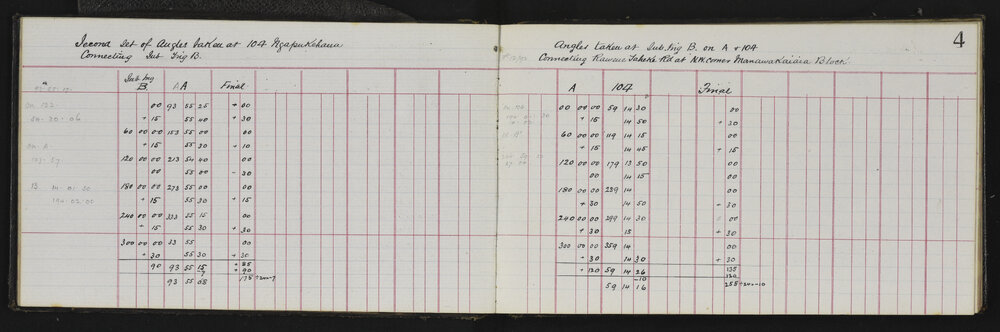 Second Set of Angles taken at 104 Ngapukehaua
Connecting Sub Trig B.
Sub Trig
B. A Final
00 93 55 25 + 00
+ 15 55 40 + 30
60 00 00 153 55 00 00
+ 15 55 30 + 10
120 00 00 213 54 40 00
00 55 00 - 30
180 00 00 273 55 00 00
+ 15 55 30 + 15
240 00 00 333 55 15 00
+ 15 55 30 + 30
300 00 00 33 55 00
+ 30 55 30 + 30
90 93 55 15 + 85
-7 + 90
93 55 08 175 ÷ 24 = 7
4
Angles taken at Sub. Trig B. on A & 104
Connecting Kawene Taheke Rd at N.W. corner Manawakaiaia Block
A 104 Final
00 00 00 59 14 30 00
+ 15 14 50 + 30
60 00 00 119 14 15 00
+ 15 14 45 + 15
120 00 00 179 13 50 00
00 14 15 00
180 00 00 239 14 00
+ 30 14 50 - 30
240 00 00 299 14 30 00
+ 30 15 + 30
300 00 00 359 14 00
+ 30 14 30 + 30
+ 120 59 14 26 135
-10 120
59 14 16 255 ÷ 24 = -10